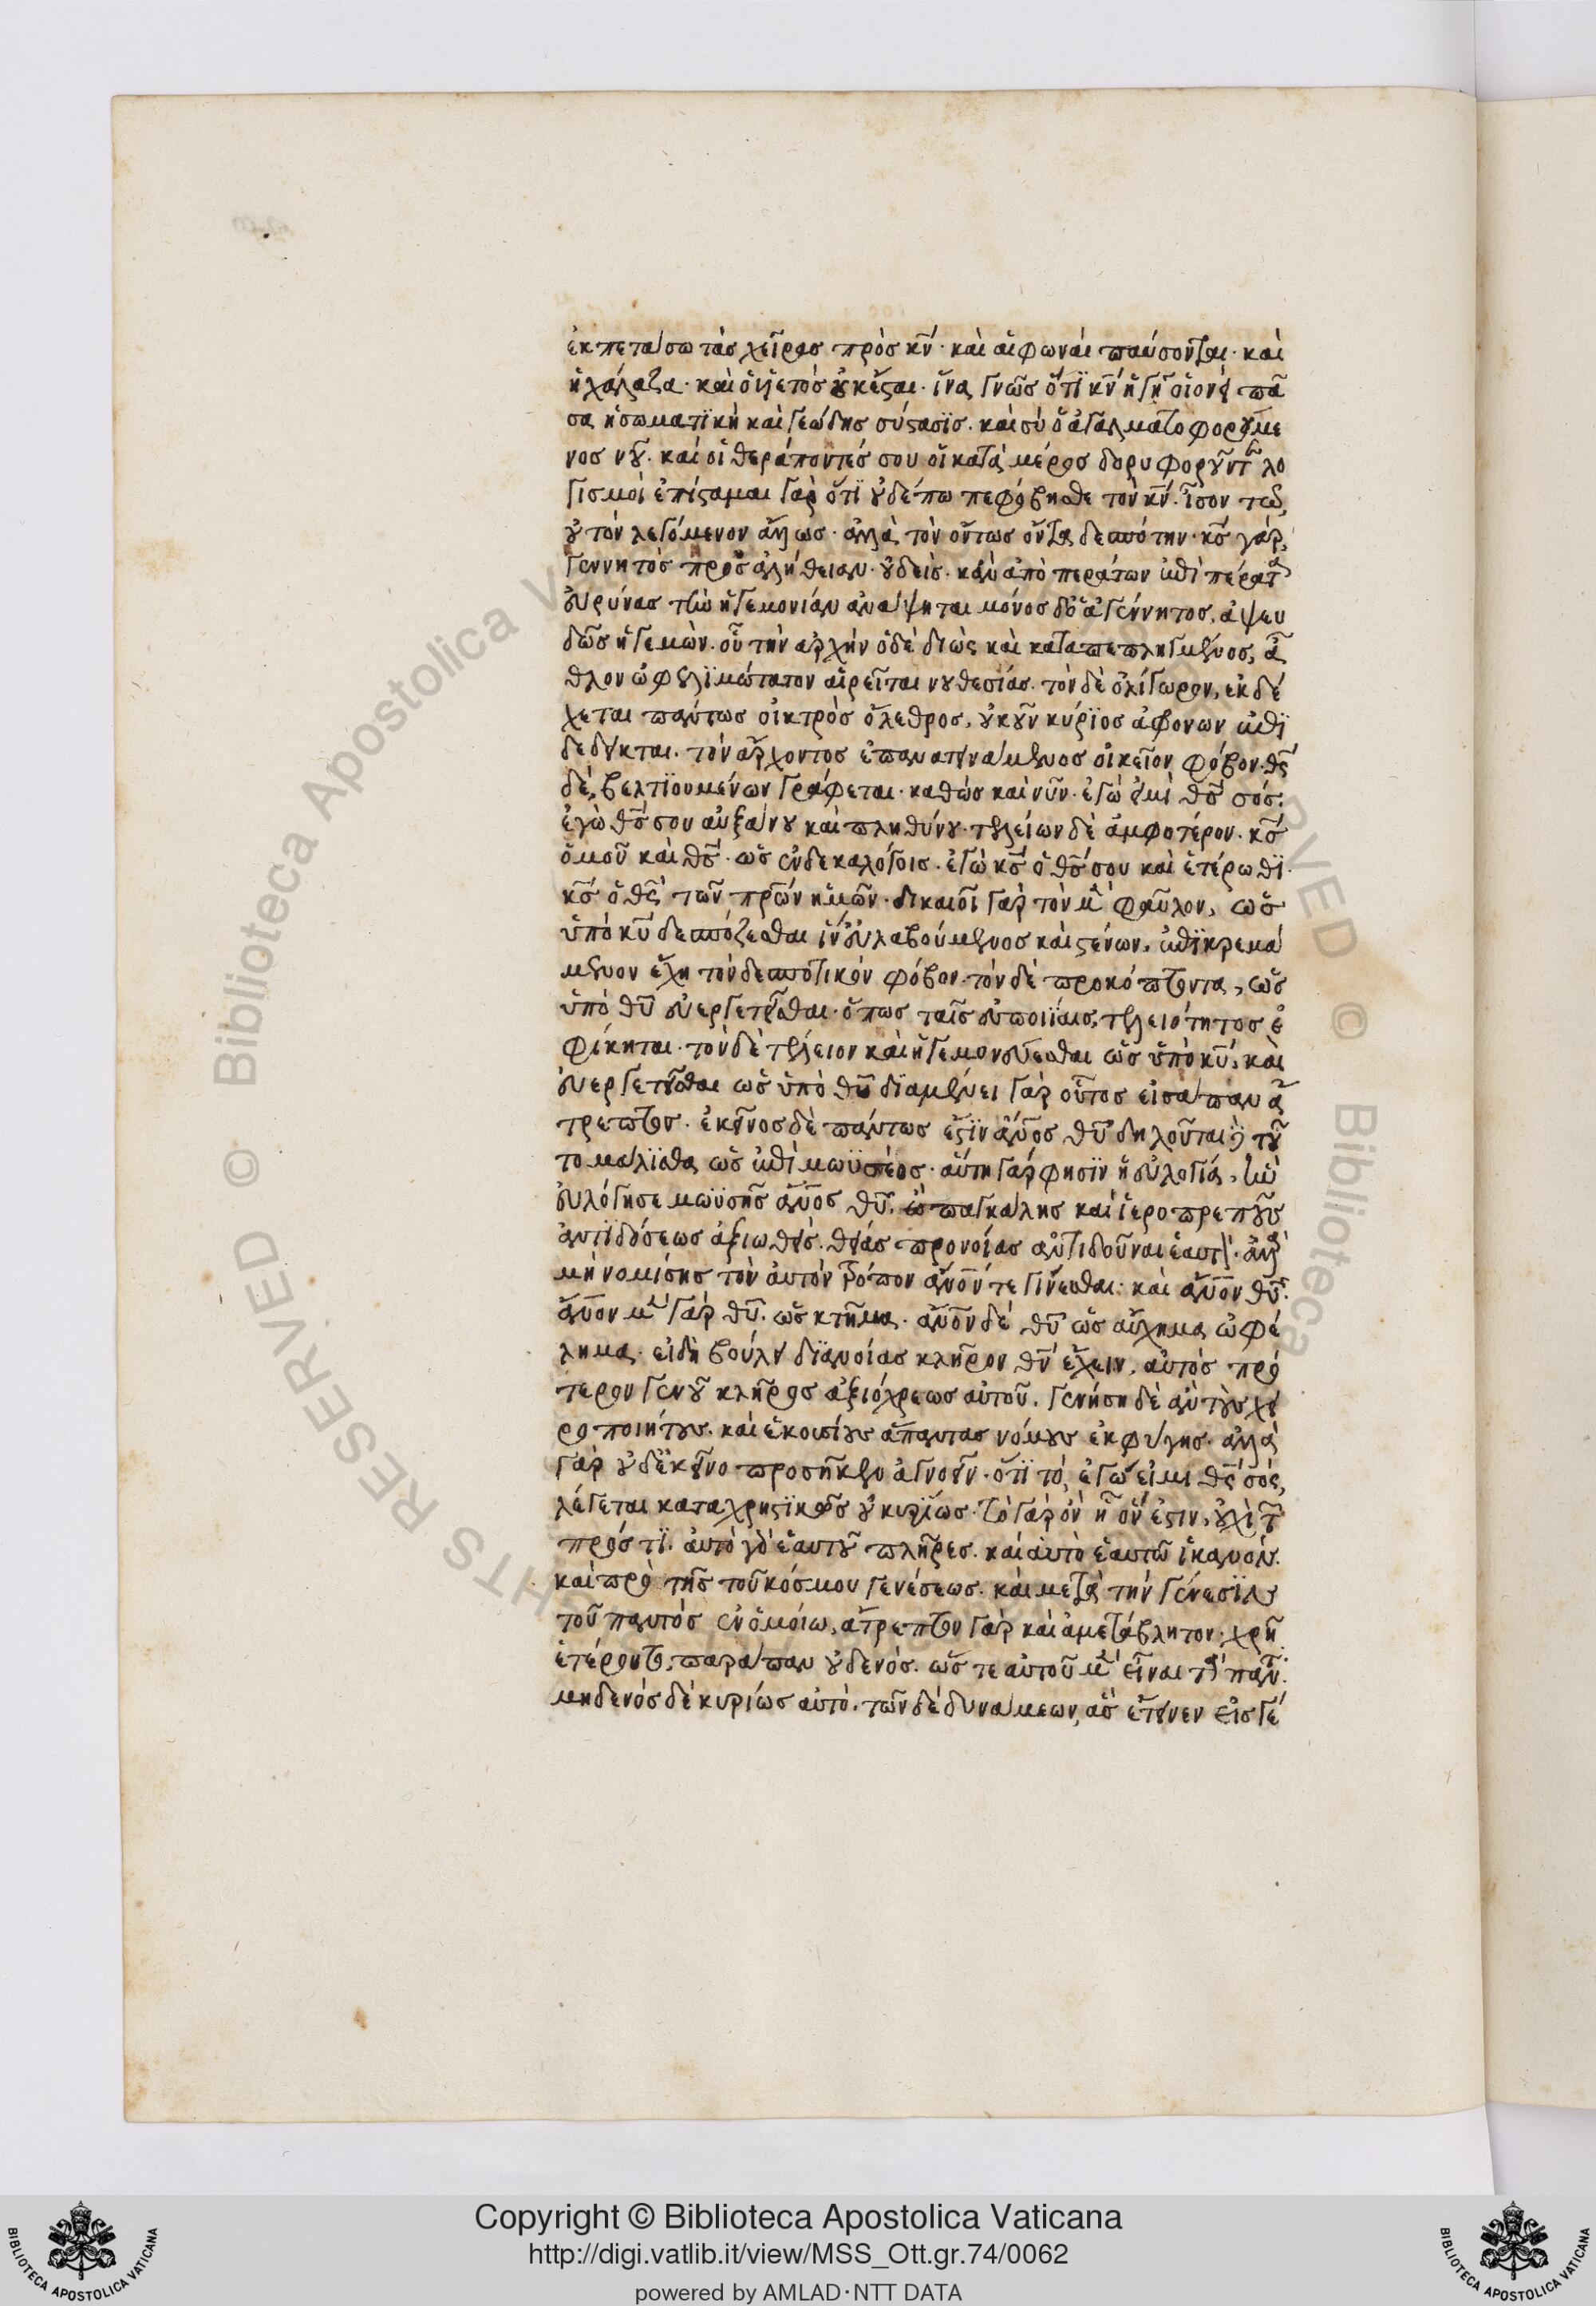 ἐκπετάσω τὰς χεῖρας πρὸς κν̅· καὶ αἱ φωναὶ παύσονται· καὶ
ἡ χάλαζα· καὶ ὁ ὑετὸς οὐκ ἔσται· ἵνα γνῶς ὅτϊ κυ̅ ἡ γῆ οἱονεὶ πᾶ
σα ἡ σωματϊκὴ καὶ γεώδης σύστασϊς. καὶ σὺ ὁ ἀγαλματοφορούμε
νος νοῦ. καὶ οἱ θεράποντές σου οἱ κατὰ μέρος δορυφοροῦντες λο
γισμοὶ ἐπίσταμαι γὰρ ὅτϊ οὐδέπω πεφόβησθε τὸν κν̅. ἴσον τῶ,
οὐ τὸν λεγόμενον ἄλλως· ἀλλὰ τὸν ὄντως ὄντα δεσπότην· κς̅ γὰρ,
γεννητὸς πρὸς ἀλήθειαν· οὐδεὶς. κἂν ἀπὸ περάτων ἐπὶ πέρατα
εὐρύνας τὴν ἡγεμονίαν ἀνάψηται μόνος δὲ ὁ ἀγέννητος, ἀψευ
δῶς ἡγεμὼν. οὗ τὴν ἀρχὴν ὁ δεδιὼς καὶ καταπεπληγμένος, ἆ
θλον ὠφελϊμώτατον αἱρεῖται νουθεσίας. τὸν δὲ ὀλίγωρον, ἐκδέ
χεται πάντως οἰκτρὸς ὄλεθρος, οὐκοῦν κύρϊος ἀφρόνων ἐπϊ
δέδεικται. τὸν ἄρχοντος ἐπανατεινάμενος οἰκεῖον φόβον. θς̅
δὲ, βελτϊουμένων γράφεται· καθὼς καὶ νῦν. ἐγώ εἰμὶ θς̅ σός·
ἐγὼ θς̅ σου αὐξάνου καὶ πληθύνου· τελείων δὲ ἀμφοτέρον. κς̅
ὁμοῦ καὶ θς̅. ὡς ἐν δεκαλόγοις. ἐγὼ κς̅ ὁ θς̅ σου καὶ ἑτέρωθϊ·
κς̅ ὁ θς̅ τῶν πρων̅ ἡμῶν· δικαιοῖ γὰρ τὸν μὲν φαῦλον, ὡς
ὑπὸ κυ̅ δεσπόζεσθαι ἵν' εὐλαβούμενος καὶ στένων, ἐπϊκρεμά
μενον ἔχη τὸν δεσποτικὸν φόβον· τὸν δὲ προκόπτοντα, ὡς
ὑπὸ θυ̅ εὐεργετεῖσθαι· ὅπως ταῖς εὐποιϊαις, τελειότητος ἐ
φίκηται· τὸν δὲ τέλειον καὶ ἡγεμονεύεσθαι ὡς ὑπὸ κυ̅, καὶ
εὐεργετεῖσθαι ὡς ὑπὸ θυ̅ δϊαμένει γὰρ οὗτος εἰσάπαν ἄ
τρεπτον. ἐκεῖνος δὲ πάντως ἐστϊν ἄνος̅ θυ̅ δηλοῦται δὲ τοῦ
το μάλϊστα ὡς ἐπὶ μωϋσέος· αὕτη γὰρ φησϊν ἡ εὐλογία, ἣν
εὐλόγησε μωϋσῆς ἄνος̅ θυ̅. ὢ παγκάλης καὶ ἱεροπρεποῦς
ἀντϊδόσεως ἀξιωθεὶς. θείας προνοίας ἀντιδοῦναι ἑαυτὸν. ἀλλὰ
μὴ νομίσης τὸν αὐτὸν τρόπον ἄνον̅ τε γίνεσθαι· καὶ ἄνον̅ θυ̅.
ἄνον̅ μὲν γὰρ θυ̅. ὡς κτῆμα. ἄνον̅ δὲ θυ̅ ὡς αὔχημα ὠφέ
λημα. εἰ δὴ βούλει δϊανοίας κλῆρον θν̅ ἔχειν, αὐτὸς πρό
τερον γενοῦ κλῆρος ἀξιόχρεως αὐτοῦ. γενήση δὲ ἂν τοὺς χει
ροποιήτους. καὶ ἑκουσίους ἅπαντας νόμους ἐκφύγης. ἀλλὰ
γὰρ οὐδ' ἐκεῖνο προσῆκεν ἀγνοεῖν· ὅτϊ τό, ἐγώ εἰμι θς̅ σός,
λέγεται καταχρηστϊκῶς οὐ κυρϊως. τὸ γὰρ ὂν ἧ ὄν ἐστιν, οὐχὶ τῶν
πρός τϊ. αὐτὸ γὰρ ἑαυτοῦ πλῆρες. καὶ αὐτὸ ἑαυτῶ ἱκανόν.
καὶ πρὸ τῆς τοῦ κόσμου γενέσεως. καὶ μετὰ τὴν γένεσϊν
τοῦ παντὸς ἐν ὁμοίω, ἄτρεπτον γὰρ καὶ ἀμετάβλητον· χρῆ
ἑτέρου τὸ, παράπαν οὐδενός. ὥς τε αὐτοῦ μὲν εἶναι τὰ πάντα.
μηδενὸς δὲ κυρίως αὐτό. τῶν δὲ δυνάμεων, ἃς ἔτεινεν εἰς γέ
Copyright © Biblioteca Apostolica Vaticana
http://digi.vatlib.it/view/MSS_Ott.gr.74/0062
powered by AMLAD·NTT DATA